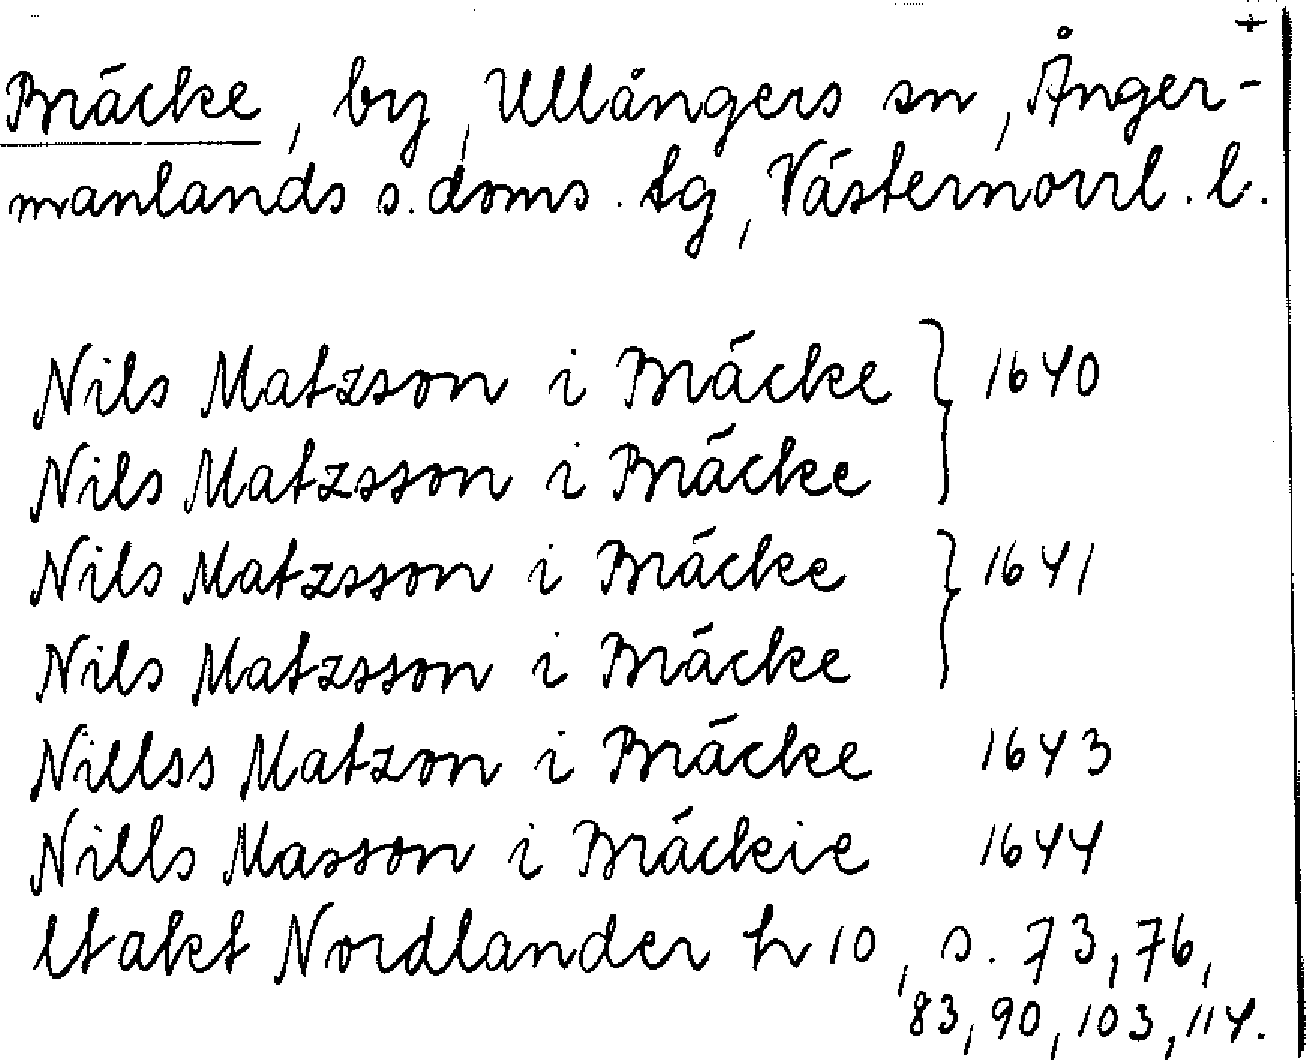 +
Bräcke, by, Ullångers sn, Ånger-
manlands s. doms. tg, Västernorrl. l.
Nils Matzson i Bräcke } 1640
Nils Matzsson i Bräcke
Nils Matzsson i Bräcke } 1641
Nils Matzsson i Bräcke
Nillss Matzon i Bräcke 1643
Nills Masson i Bräckie 1644
Utakt Nordlander h 10, s. 73, 76,
83, 90, 103, 114.